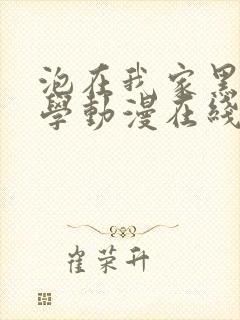 泡在我家黑
學動漫在綫
崔荣升